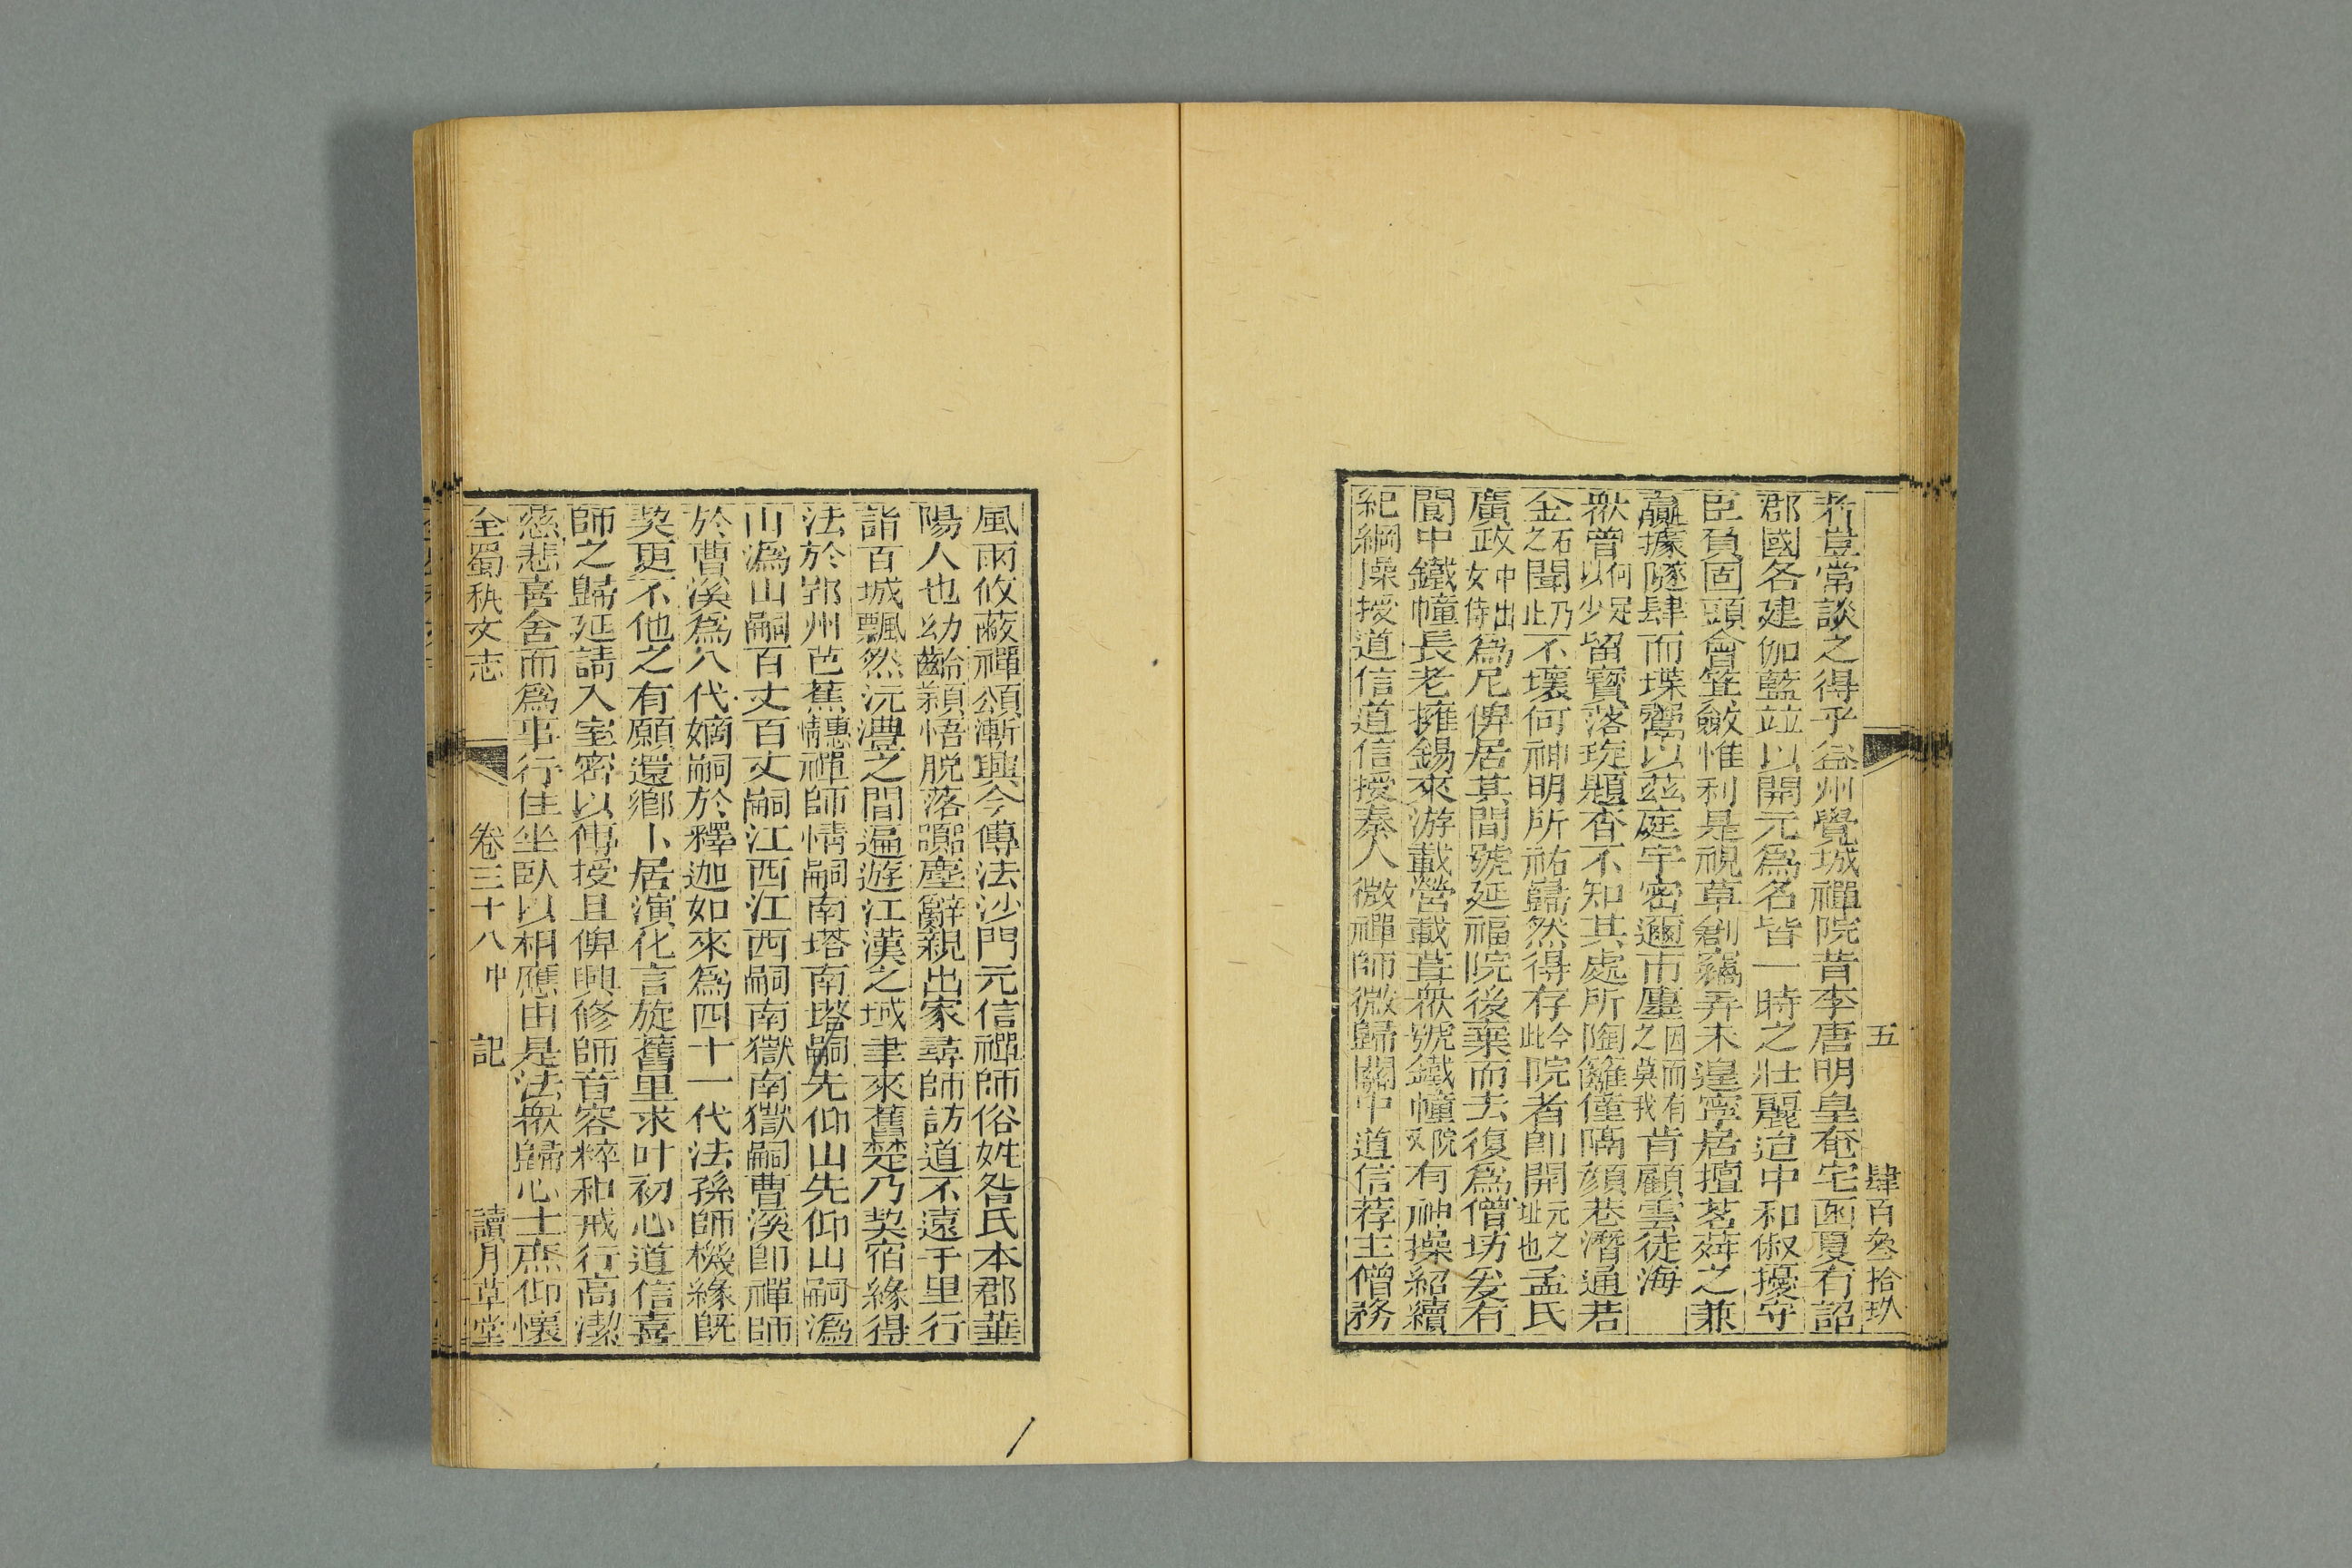 五　肆百叁拾玖
者豈常談之得乎益州覺城禪院昔李唐明皇奄宅函夏有詔
郡國各建伽藍竝以開元爲名皆一時之壯麗迨中和俶擾守
臣負固頭會箕斂惟利是視草創竊弄未遑寧居擅茗荈之兼
贏據隧肆而堞鬻以茲庭宇密邇市廛因而有之莫我肯顧雲徒海
衆曾何足以少留寶落琁題杳不知其處所隣籬僅隔顏巷潛通若
金石之聞乃止不壞何神明所祐歸然得存今此院者卽開元之址也孟氏
廣政中出女侍爲尼俾居其間號延福院後棄而去復爲僧坊爰有
閬中鐵幢長老擁錫來游載營載葺衆號鐵幢院又有神操紹續
紀綱操授道信道信授秦人微禪師微歸關中道信荐主僧務
風雨攸蔽禪頌漸興今傳法沙門元信禪師俗姓昝氏本郡華
陽人也幼齡穎悟脫落囂塵辭親出家尋師訪道不遠千里行
詣百城飄然沅澧之間遍遊江漢之域聿來舊楚乃契宿緣得
法於郢州芭蕉惠情禪師情嗣南塔南塔嗣先仰山先仰山嗣潙
山潙山嗣百丈百丈嗣江西江西嗣南嶽南嶽嗣曹溪卽禪師
於曹溪爲八代嫡嗣於釋迦如來爲四十一代法孫師機緣旣
契更不他之有願還鄕卜居演化言旋舊里求叶初心道信喜
師之歸延請入室密以傳授且俾興修師音容粹和戒行高潔
慈悲喜舍而爲事行住坐臥以相應由是法衆歸心士庶仰懷
全蜀秇文志　卷三十八中　記　讀月草堂